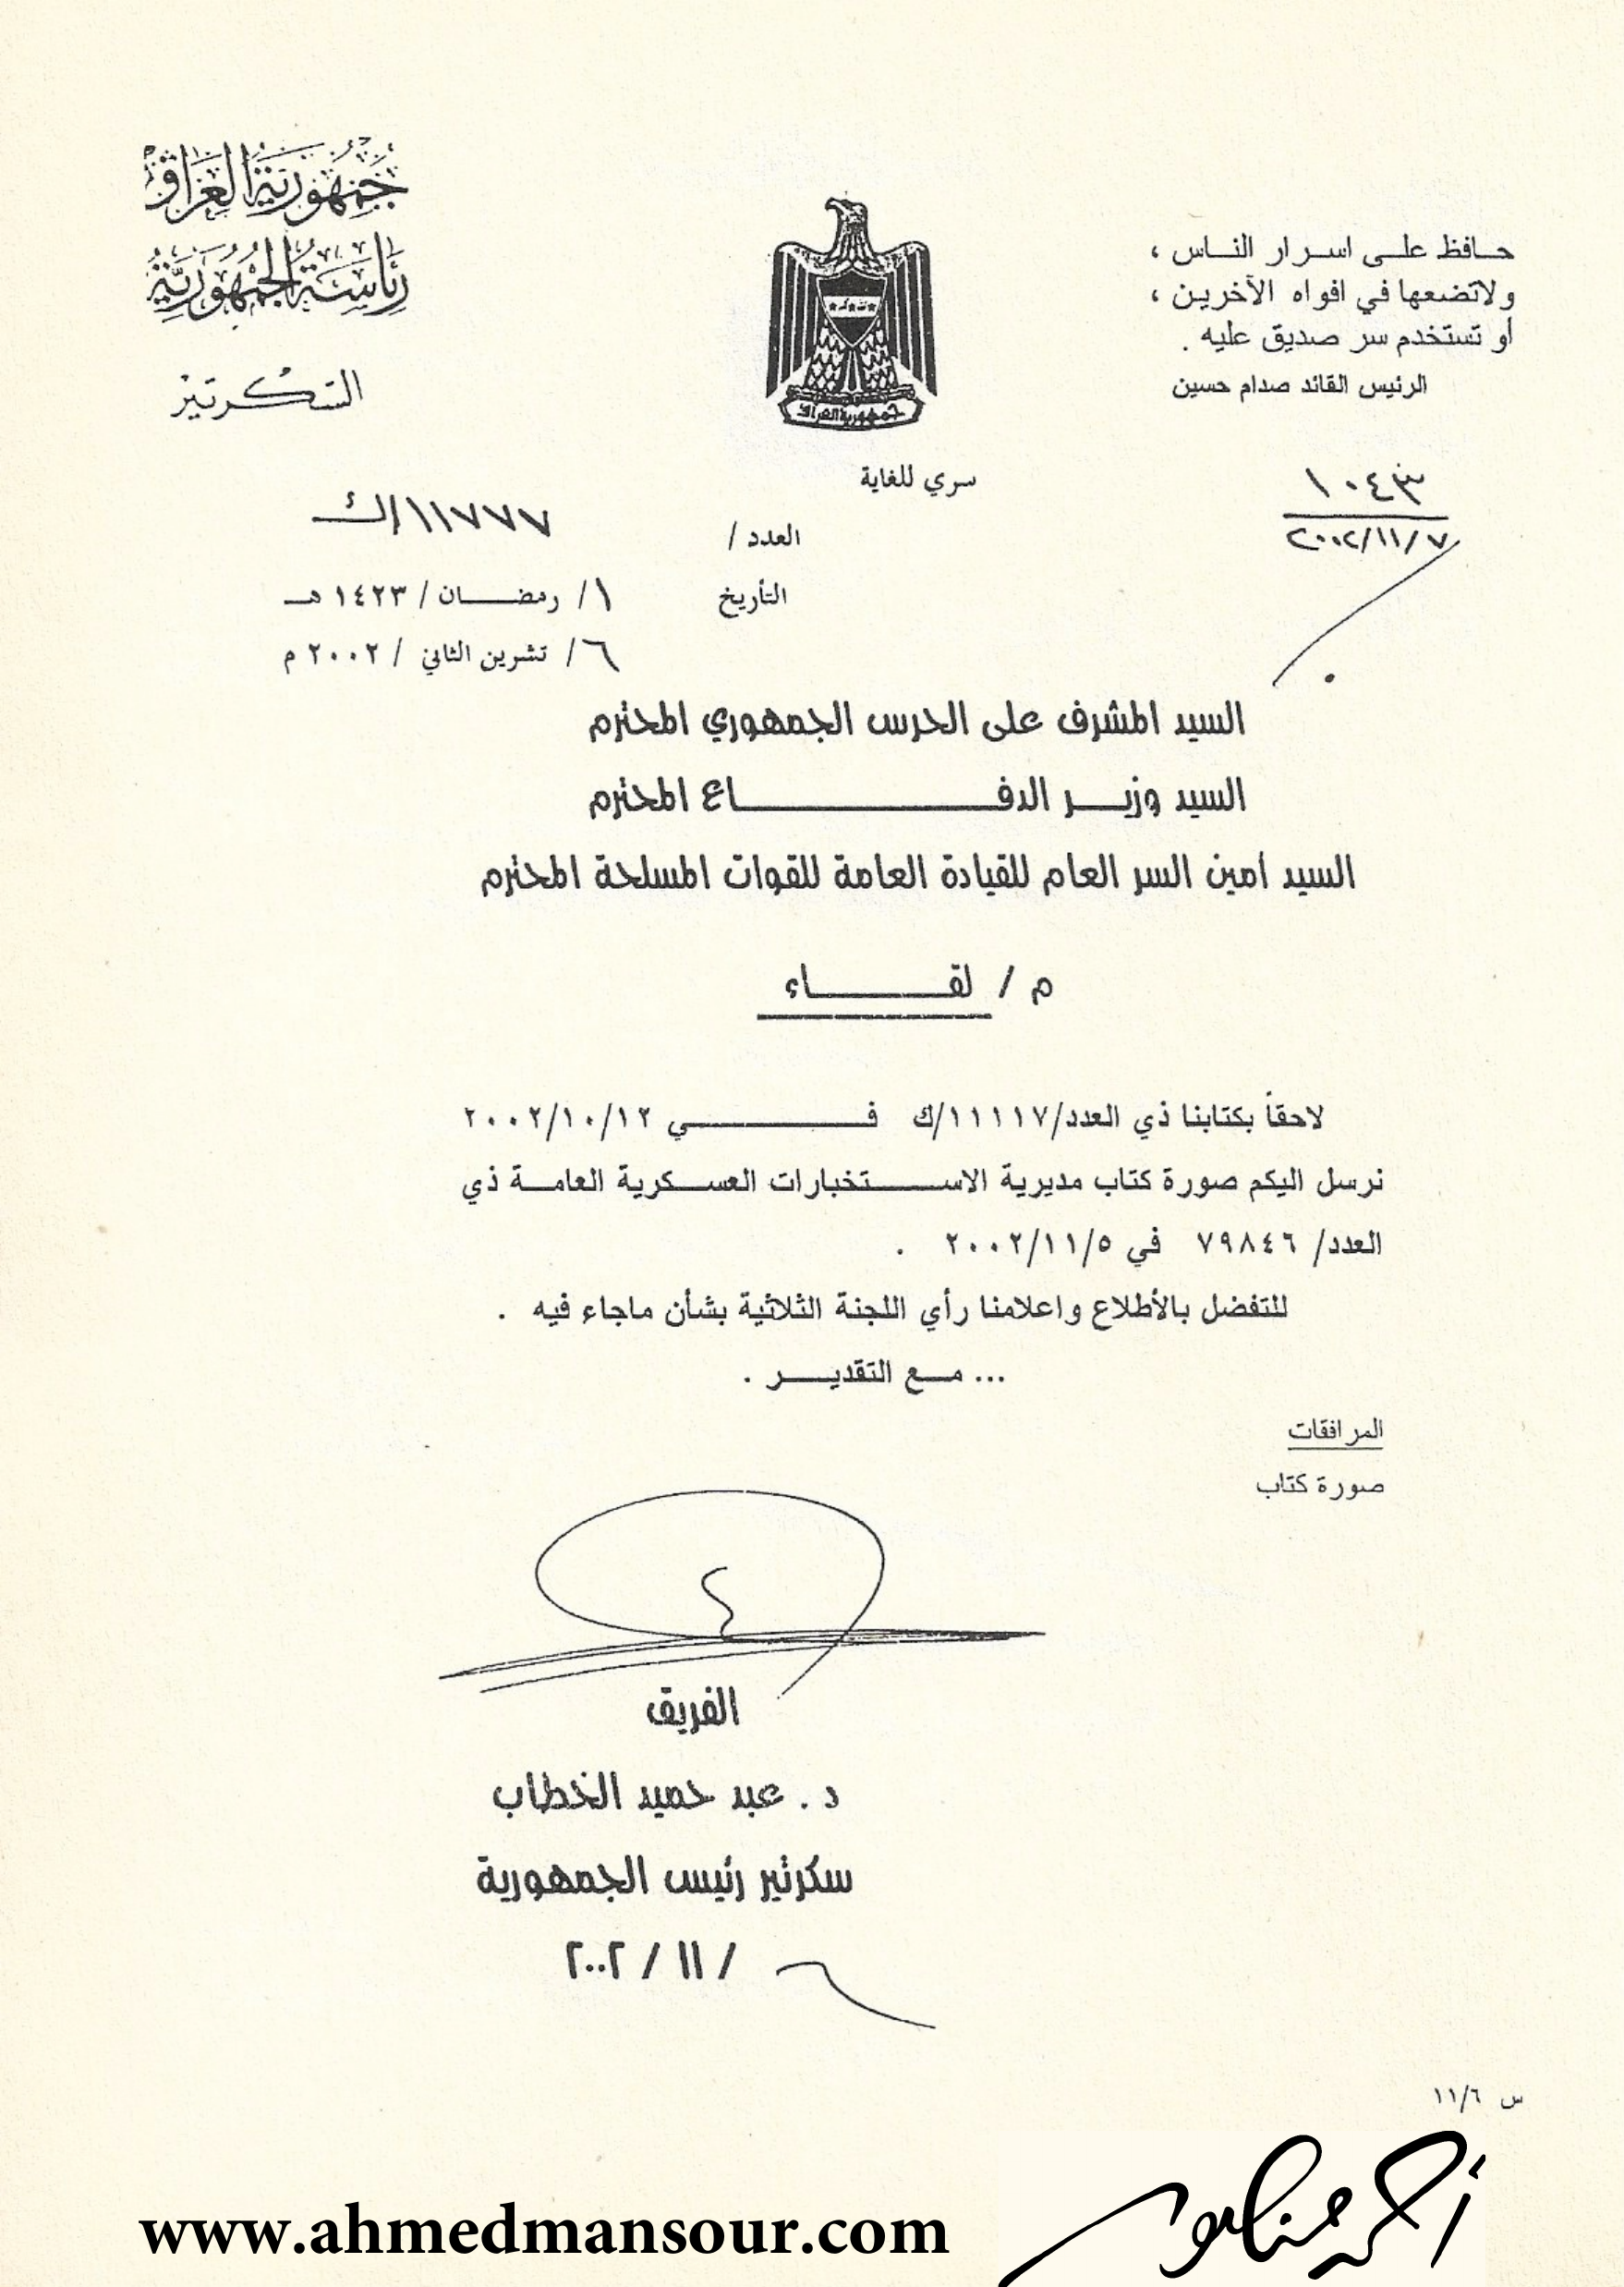 جمهورية العراق
رئاسة الجمهورية
السكرتير
حافظ على اسرار الناس ،
ولاتضعها في افواه الآخرين ،
أو تستخدم سر صديق عليه .
الرئيس القائد صدام حسين
جمهورية العراق
سري للغاية
١٠٤٣
٢٠٠٢/١١/٧
العدد / ١١٧٧٧/ك
التأريخ ١/ رمضان / ١٤٢٣ هـ
٦/ تشرين الثاني / ٢٠٠٢ م
السيد المشرف على الحرس الجمهوري المحترم
السيد وزير الدفاع المحترم
السيد امين السر العام للقيادة العامة للقوات المسلحة المحترم
م / لقاء
لاحقاً بكتابنا ذي العدد/١١١١٧/ك في ٢٠٠٢/١٠/١٢
نرسل اليكم صورة كتاب مديرية الاستخبارات العسكرية العامة ذي
العدد/ ٧٩٨٤٦ في ٢٠٠٢/١١/٥ .
للتفضل بالأطلاع واعلامنا رأي اللجنة الثلاثية بشأن ماجاء فيه .
... مع التقدير .
المرافقات
صورة كتاب
الفريق
د . عبد حميد الخطاب
سكرتير رئيس الجمهورية
٦ / ١١ / ٢٠٠٢
س ١١/٦
www.ahmedmansour.com
أحمد منصور